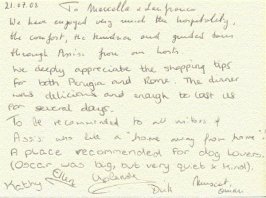 21.07.03 To Marcello & Leefranco
We have enjoyed very much the hospitality,
the comfort, the kindness and guided tours
through Assisi from our hosts.
We deeply appreciate the shopping tips
for both Perugia and Rome. The dinner
was delicious and enough to last us
for several days.
To be recommended to all visitors of
Assisi who like a "home away from home".
A place recommended for dog lovers.
(Oscar was big, but very quiet & kind).
Kathy Ellen